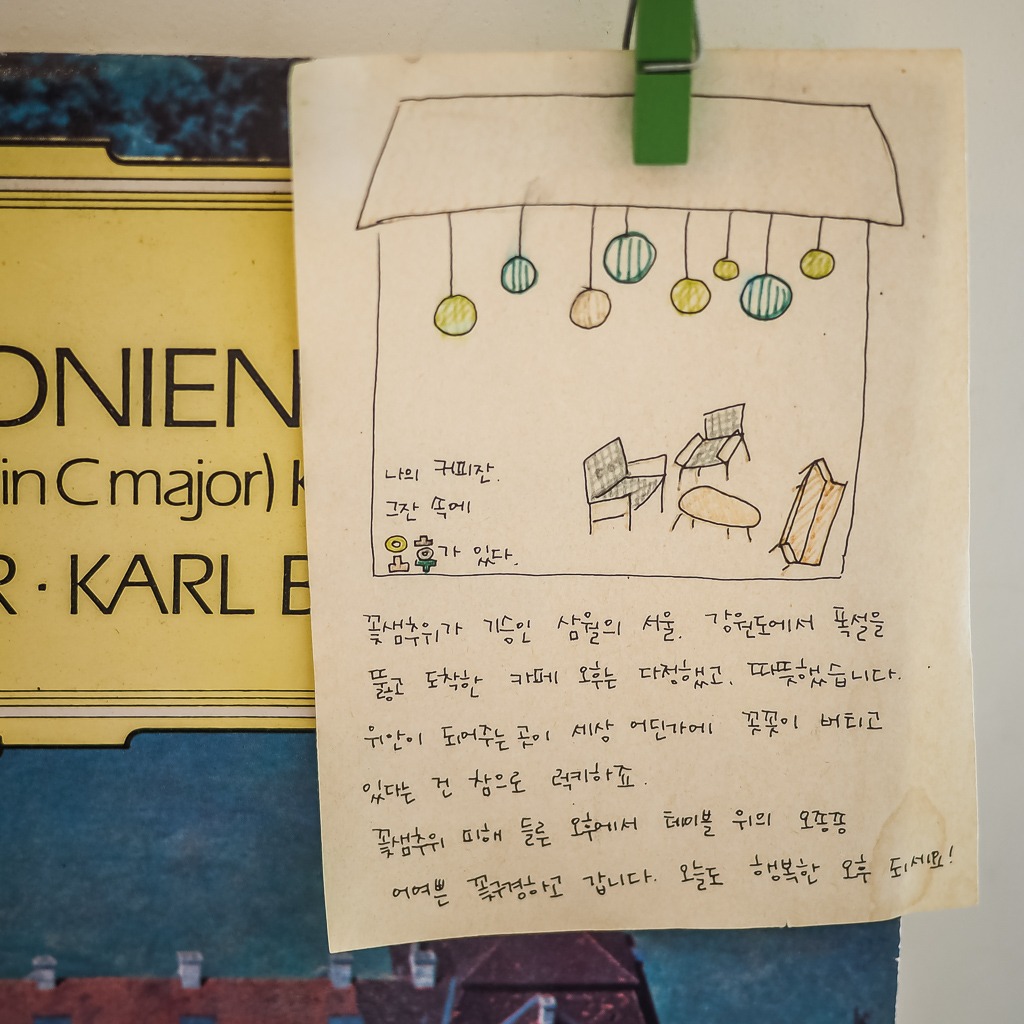 ONIEN
in C major) K
R · KARL B
나의 커피잔.
그잔 속에
오후가 있다.
꽃샘추위가 기승인 삼월의 서울. 강원도에서 폭설을
뚫고 도착한 카페 오후는 다정했고, 따뜻했습니다.
위안이 되어주는 곳이 세상 어딘가에 꼿꼿이 버티고
있다는 건 참으로 럭키하죠.
꽃샘추위 피해 들른 오후에서 테이블 위의 오종종
어여쁜 꽃구경하고 갑니다. 오늘도 행복한 오후 되세요!